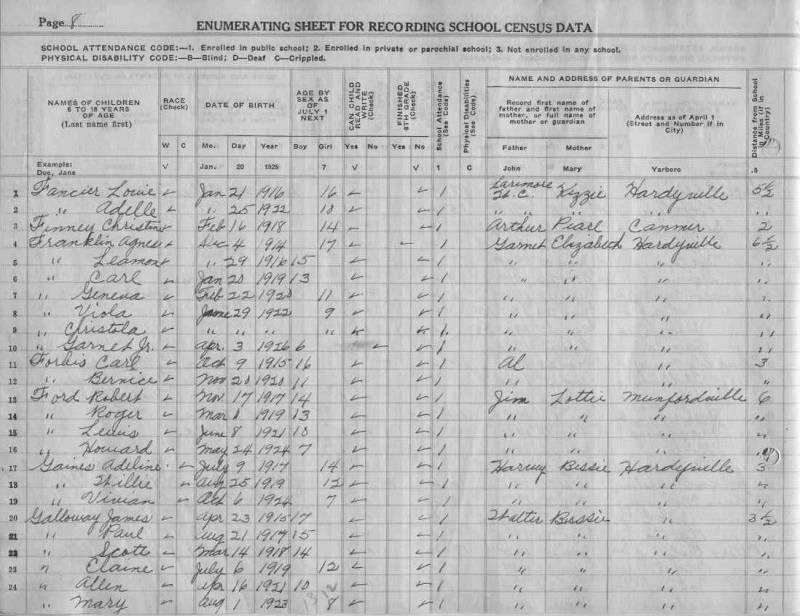 Page 8
ENUMERATING SHEET FOR RECORDING SCHOOL CENSUS DATA
SCHOOL ATTENDANCE CODE:—1. Enrolled in public school; 2. Enrolled in private or parochial school; 3. Not enrolled in any school.
PHYSICAL DISABILITY CODE:—B—Blind; D—Deaf C—Crippled.
NAMES OF CHILDREN 6 TO 18 YEARS OF AGE (Last name first) RACE (Check) W C DATE OF BIRTH Mo. Day Year AGE BY SEX AS OF JULY 1 NEXT Boy Girl CAN CHILD READ AND WRITE (Check) Yes No FINISHED 8TH GRADE (Check) Yes No School Attendance (See Code) Physical Disabilities (See Code) NAME AND ADDRESS OF PARENTS OR GUARDIAN Record first name of father and first name of mother, or full name of mother or guardian Father Mother Address as of April 1 (Street and Number if in City) Distance from School in Miles (if in Country)
Example: Doe, Jane V Jan. 20 1925 7 V V 1 C John Mary Yarboro .5
1 Fancier Louie ✓ Jan 21 1916 16 ✓ ✓ 1 Larimore H.C. Kizzie Hardyville 5½
2 " Adelle ✓ " 25 1922 10 ✓ ✓ 1 " " " "
3 Finney Christine ✓ Feb 16 1918 14 ✓ ✓ 1 Arthur Pearl Canmer 2
4 Franklin Agnes ✓ Dec 4 1914 17 ✓ ✓ 1 Garnet Elizabeth Hardyville 6½
5 " Leamon ✓ " 29 1916 15 ✓ ✓ 1 " " " "
6 " Carl ✓ Jan 20 1919 13 ✓ ✓ 1 " " " "
7 " Geneva ✓ Feb 22 1920 11 ✓ ✓ 1 " " "
8 " Viola ✓ June 29 1922 9 ✓ ✓ 1 " " " "
9 " Christola ✓ " " " " ✓ ✓ 1 " " " "
10 " Garnet Jr. ✓ Apr. 3 1926 6 ✓ ✓ 1 " " " "
11 Forbis Carl ✓ Oct 9 1915 16 ✓ ✓ 1 Al 3
12 " Bernice ✓ Nov 20 1920 11 ✓ ✓ 1 " " "
13 Ford Robert ✓ Nov. 17 1917 14 ✓ ✓ 1 Jim Lottie Munfordville 6
14 " Roger ✓ Mar 8 1919 13 ✓ ✓ 1 " " " "
15 " Lewis ✓ June 8 1921 10 ✓ ✓ 1 " " " "
16 " Howard ✓ May 24 1924 7 ✓ ✓ 1 " " " "
17 Gaines Adeline ✓ July 9 1917 14 ✓ ✓ 1 Harvey Bessie Hardyville 3
18 " Willie ✓ Aug 25 1919 12 ✓ ✓ 1 " " " "
19 " Vivian ✓ Oct 6 1924 7 ✓ ✓ 1 " " " "
20 Galloway James ✓ Apr 23 1915 17 ✓ ✓ 1 Walter Bessie " 3½
21 " Paul ✓ Aug 21 1917 15 ✓ ✓ 1 " " " "
22 " Scott ✓ Mar 14 1918 14 ✓ ✓ 1 " " " "
23 " Elaine ✓ July 6 1919 12 ✓ ✓ 1 " " " "
24 " Allen ✓ Apr 16 1921 10 ✓ ✓ 1 " " " "
" Mary ✓ Aug 1 1923 8 ✓ ✓ 1 " " " "